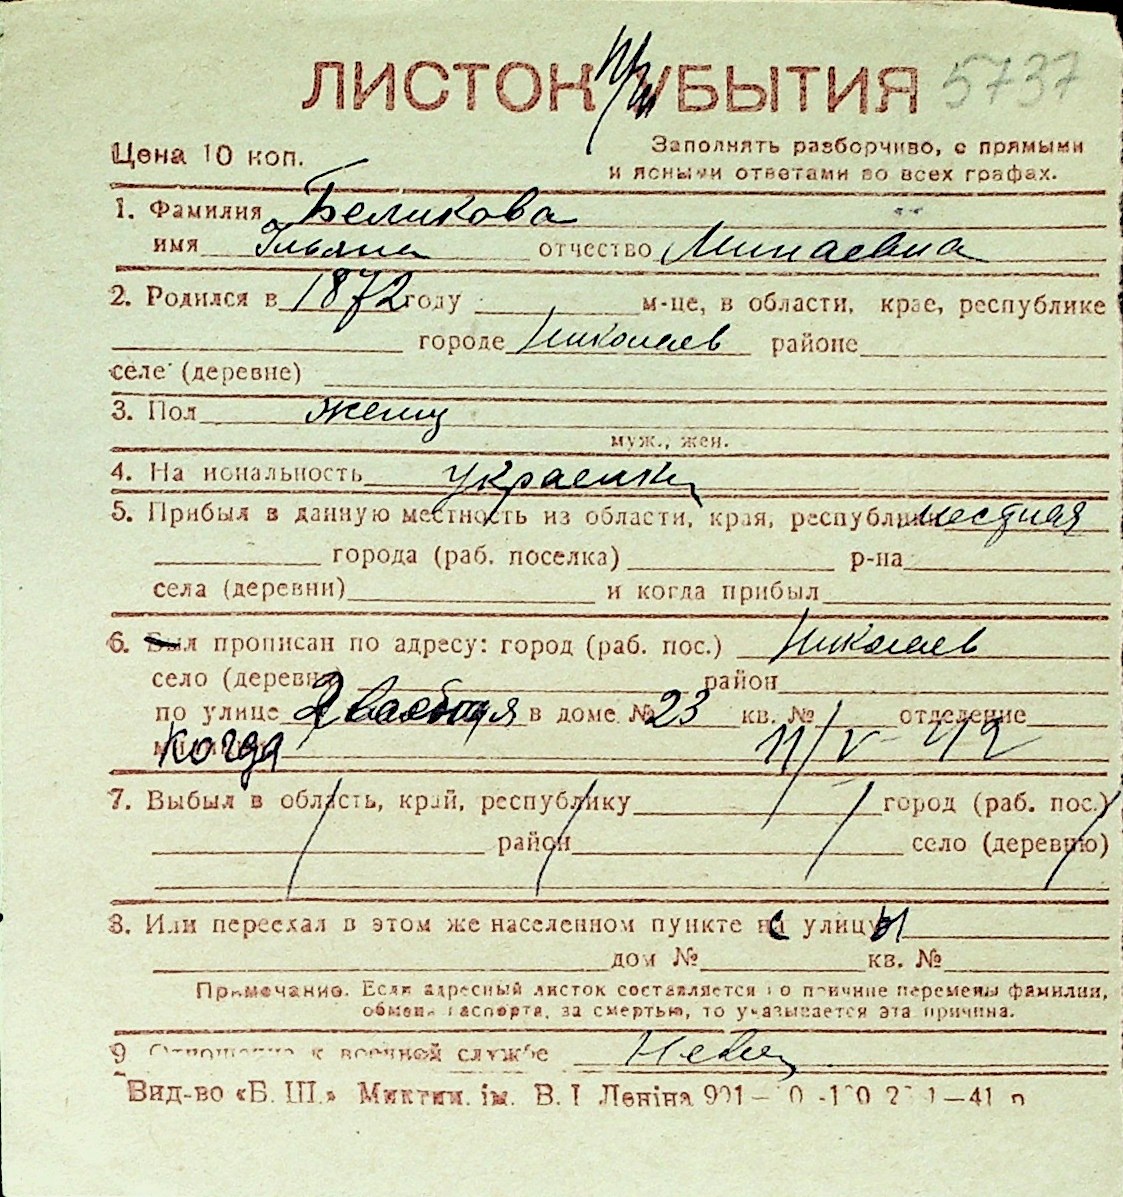 ЛИСТОК УБЫТИЯ 5737
Цена 10 коп.
Заполнять разборчиво, с прямыми
и ясными ответами во всех графах.
1. Фамилия Беликова
имя Ульяна отчество Минаевна
2. Родился в 1872 году м-це, в области, крае, республике
городе Николаев районе
селе (деревне)
3. Пол женщ
муж., жен.
4. На иональность украинка
5. Прибыл в данную местность из области, края, республики местная
города (раб. поселка) р-на
села (деревни) и когда прибыл
6. Был прописан по адресу: город (раб. пос.) Николаев
село (деревня) район
по улице в доме № 23 кв. № отделение
когда 11/V-42
7. Выбыл в область, край, республику город (раб. пос.)
район село (деревню)
8. Или переехал в этом же населенном пункте с улицы
дом № кв. №
Примечание. Если адресный листок составляется по причине перемены фамилии,
обмена паспорта, за смертью, то указывается эта причина.
9 Отношение к военной службе
Вид-во «Б. Ш.» Миктип. ім. В. І Леніна